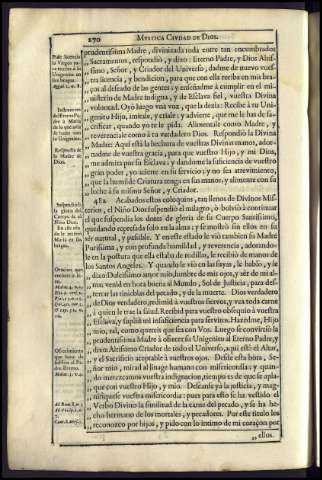 270 MYSTICA CIVDAD DE DIOS.
prudentissima Madre, divinizada toda entre tan encumbrados
Sacramentos, respondiò, y dixo: Eterno Padre, y Dios Altis-
simo, Señor, y Criador del Universo, dadme de nuevo vues-
tra licencia, y bendicion, para que con ella reciba en mis bra-
ços al deseado de las gentes; y enseñadme à cumplir en el mi-
nisterio de Madre indigna, y de Esclava fiel, vuestra Divina
voluntad. Oyò luego vna voz, que la dezia: Recibe à tu Uni-
genito Hijo, imitale, y criale; y advierte, que me le has de sa-
crificar, quando yo te le pida. Alimentale como Madre, y
reverenciale como à tu verdadero Dios. Respondiò la Divina
Madre: Aqui està la hechura de vuestras Divinas manos, ador-
nadme de vuestra gracia, para que vuestro Hijo, y mi Dios,
me admita por su Esclava: y dandome la suficiencia de vuestro
gran poder, yo acierte en su servicio; y no sea atrevimiento,
que la humilde Criatura tenga en sus manos, y alimente con su
leche à su mismo Señor, y Criador.
482 Acabados estos coloquios, tan llenos de Divinos Mis-
terios, el Niño Dios suspendiò el milagro, ò bolviò à continuar
el que suspendia los dotes de gloria de su Cuerpo Santissimo,
quedando represada solo en la alma; y se mostrò sin ellos en su
ser natural, y passible. Y en este estado le viò tambien su Madre
Purissima, y con profunda humildad, y reverencia, adorando-
le en la postura que ella estaba de rodillas, le recibiò de manos de
los Santos Angeles. Y quando le viò en las suyas, le hablò, y le
dixo: Dulcissimo amor mio, lumbre de mis ojos, y sèr de mi al-
ma; venid en hora buena al Mundo, Sol de Justicia, para des-
terrar las tinieblas del pecado, y de la muerte. Dios verdadero
de Dios verdadero, redimid à vuestros siervos, y vea toda carne
à quien le trae la salud. Recibid para vuestro obsequio à vuestra
Esclava, y suplid mi insuficiencia para serviros. Hazedme, Hijo
mio, tal, como quereis que sea con Vos. Luego se convirtiò la
prudentissima Madre à ofrecer su Unigenito al Eterno Padre, y
dixo: Altissimo Criador de todo el Universo, aqui està el Altar,
y el Sacrificio aceptable à vuestros ojos. Desde esta hora, Se-
ñor mio, mirad al linage humano con misericordia; y quan-
do merezcamos vuestra indignacion, tiempo es de que se apla-
que con vuestro Hijo, y mio. Descanse yà la justicia, y mag-
nifiquese vuestra misericordia; pues para esto se ha vestido el
Verbo Divino la similitud de la carne del pecado, y se ha he-
cho hermano de los mortales, y pecadores. Por este titulo los
reconozco por hijos, y pido con lo intimo de mi coraçon por
ellos.